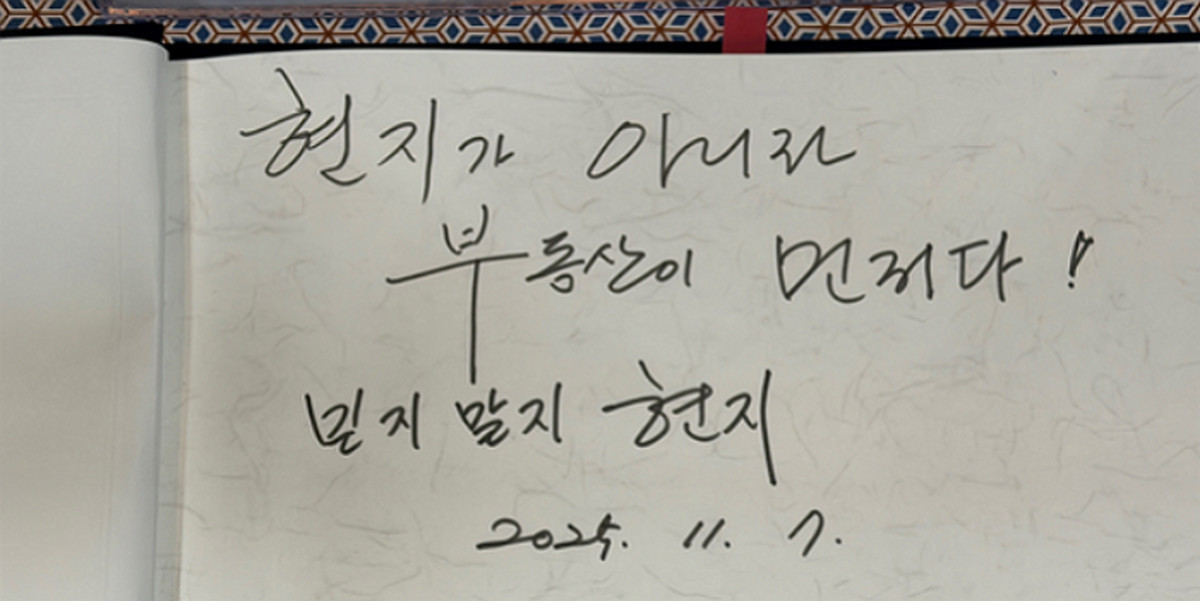 현지가 아니라
부동산이 먼저다!
믿지 말지 현지
2025. 11. 7.